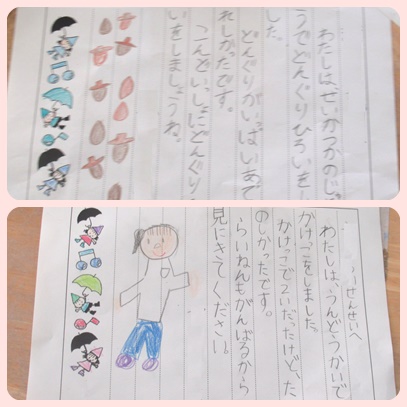 わたしはせいかつかのじゅ
うでどんぐりひろいを
した。
どんぐりがいっぱいあて
れしかたです。
こんどいっしょにどんぐり
いをしましょうね。
せんせいへ
わたしは、うんどうかいで
かけっこをしました。
かけっこで2いだったけど、た
のしかったです。
らいねんもがんばるから
見にきてください。